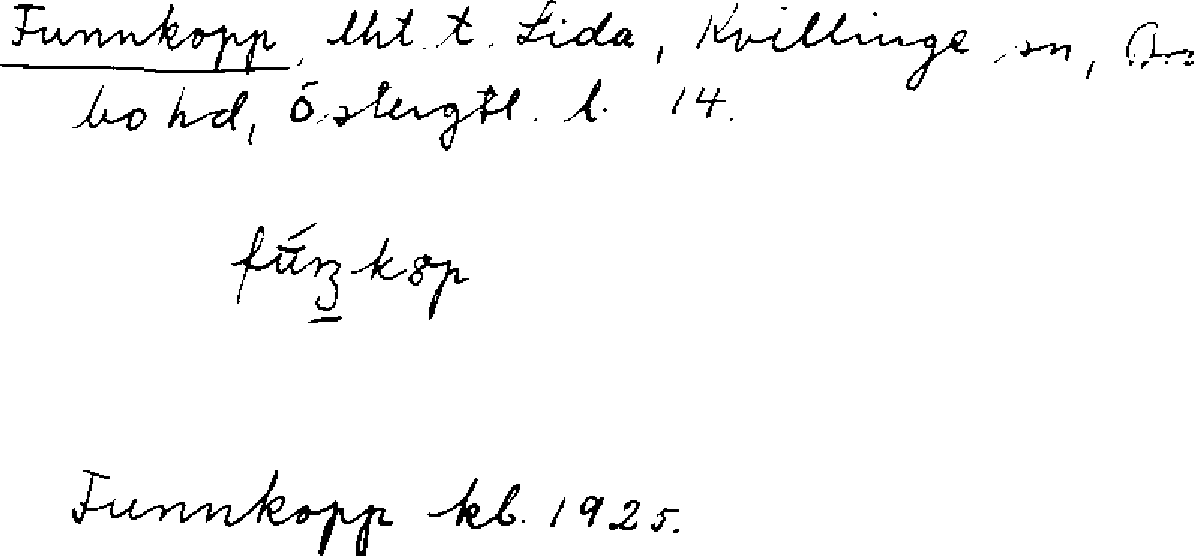 Funnkopp, lht. t. Lida, Kvillinge sn, Brå
bo hd, Östergtl. l. 14.
Funnkopp kb. 1925.